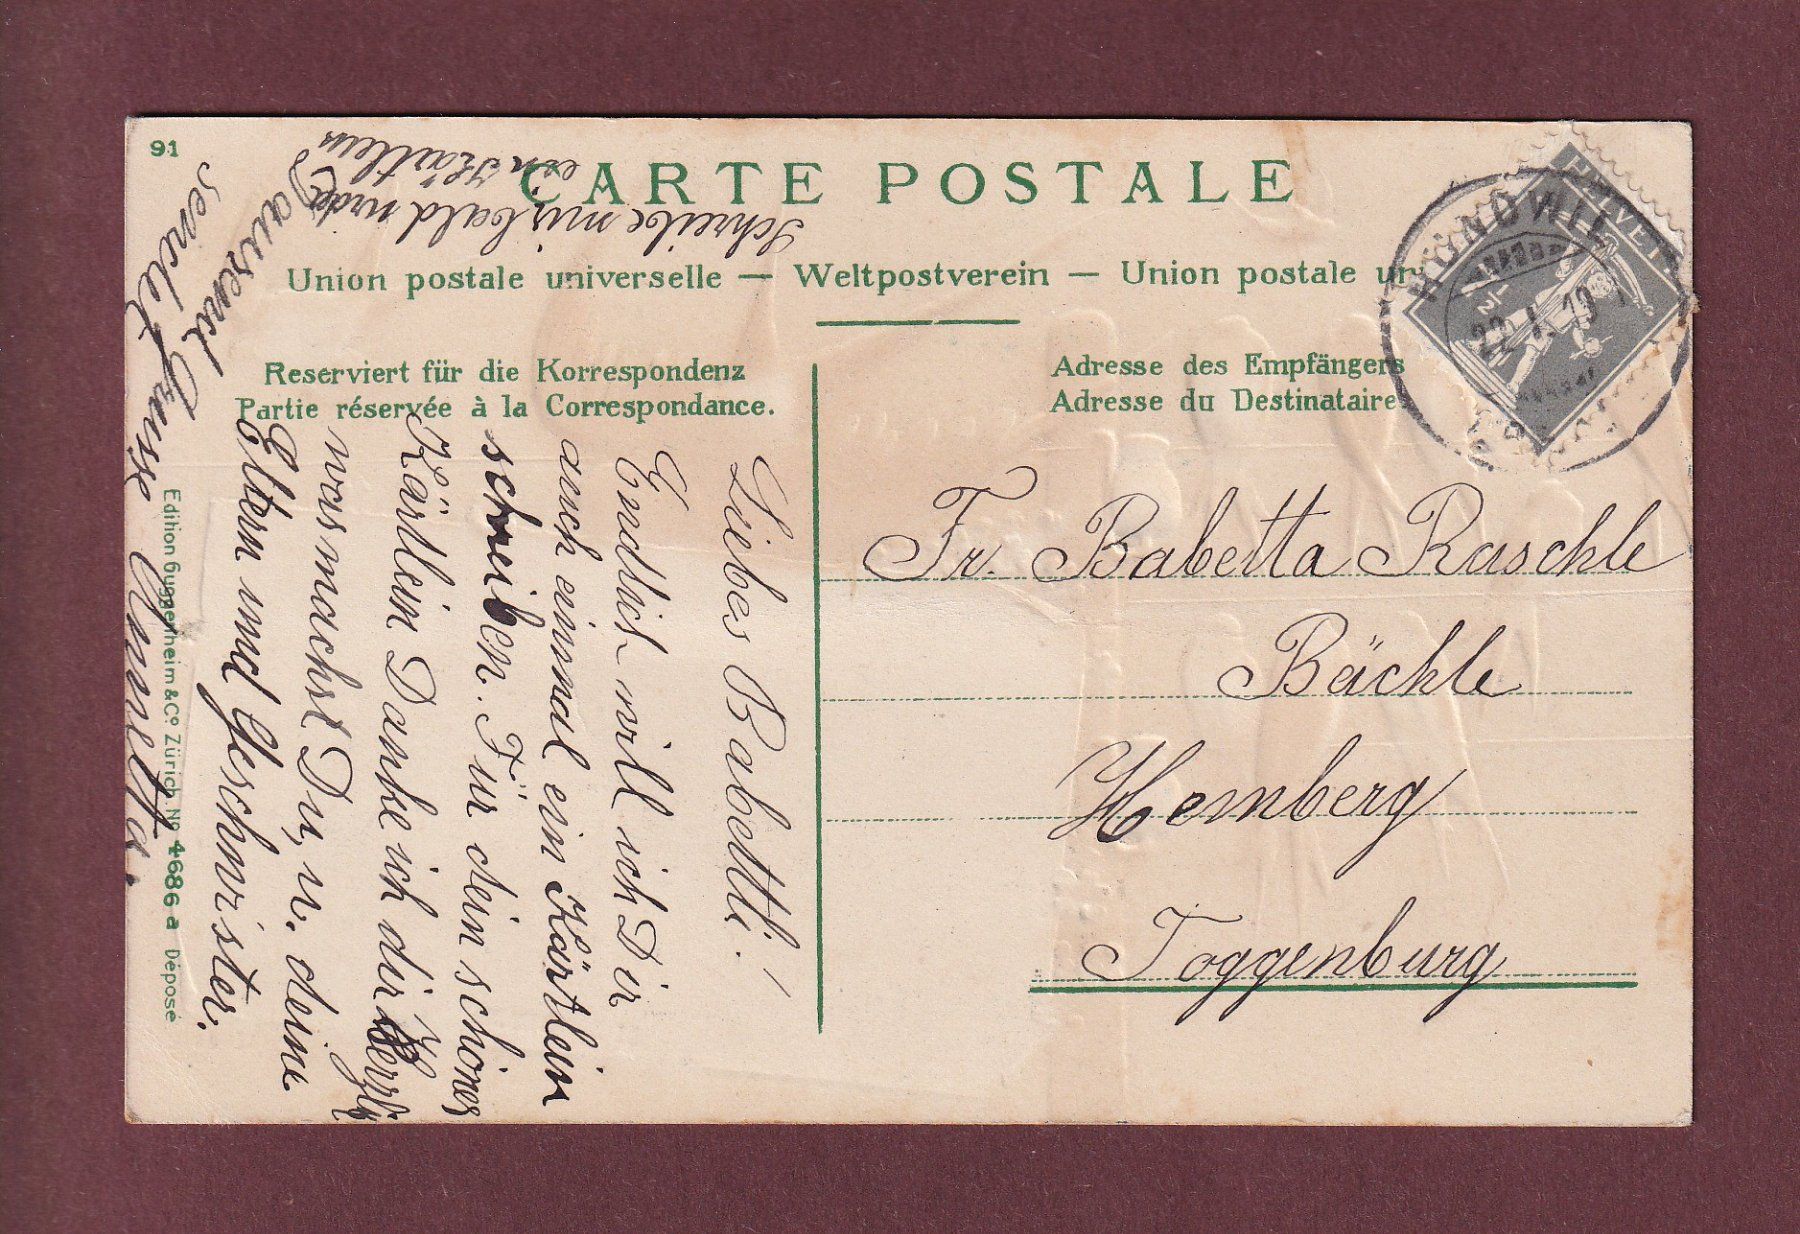 91
CARTE POSTALE
Union postale universelle — Weltpostverein — Union postale un
Reserviert für die Korrespondenz
Partie réservée à la Correspondance.
Adresse des Empfängers
Adresse du Destinataire
HUNDWIL
22. I. 10
HELVETI
2½
Fr. Babetta Raschle
Bächle
Hemberg
Toggenburg
Liebes Babettli!
Endlich will ich Dir
auch einmal ein Kärtlein
schreiben. Für dein schönes
Kärtlein Danke ich dir Herzli
was machst Du, u. deine
Eltern und Geschwister.
Tausend Grüsse
sendet Annetta.
Schreibe mir bald wider
ein Kärtlein
Edition Guggenheim & Co. Zürich No. 4686 a Déposé